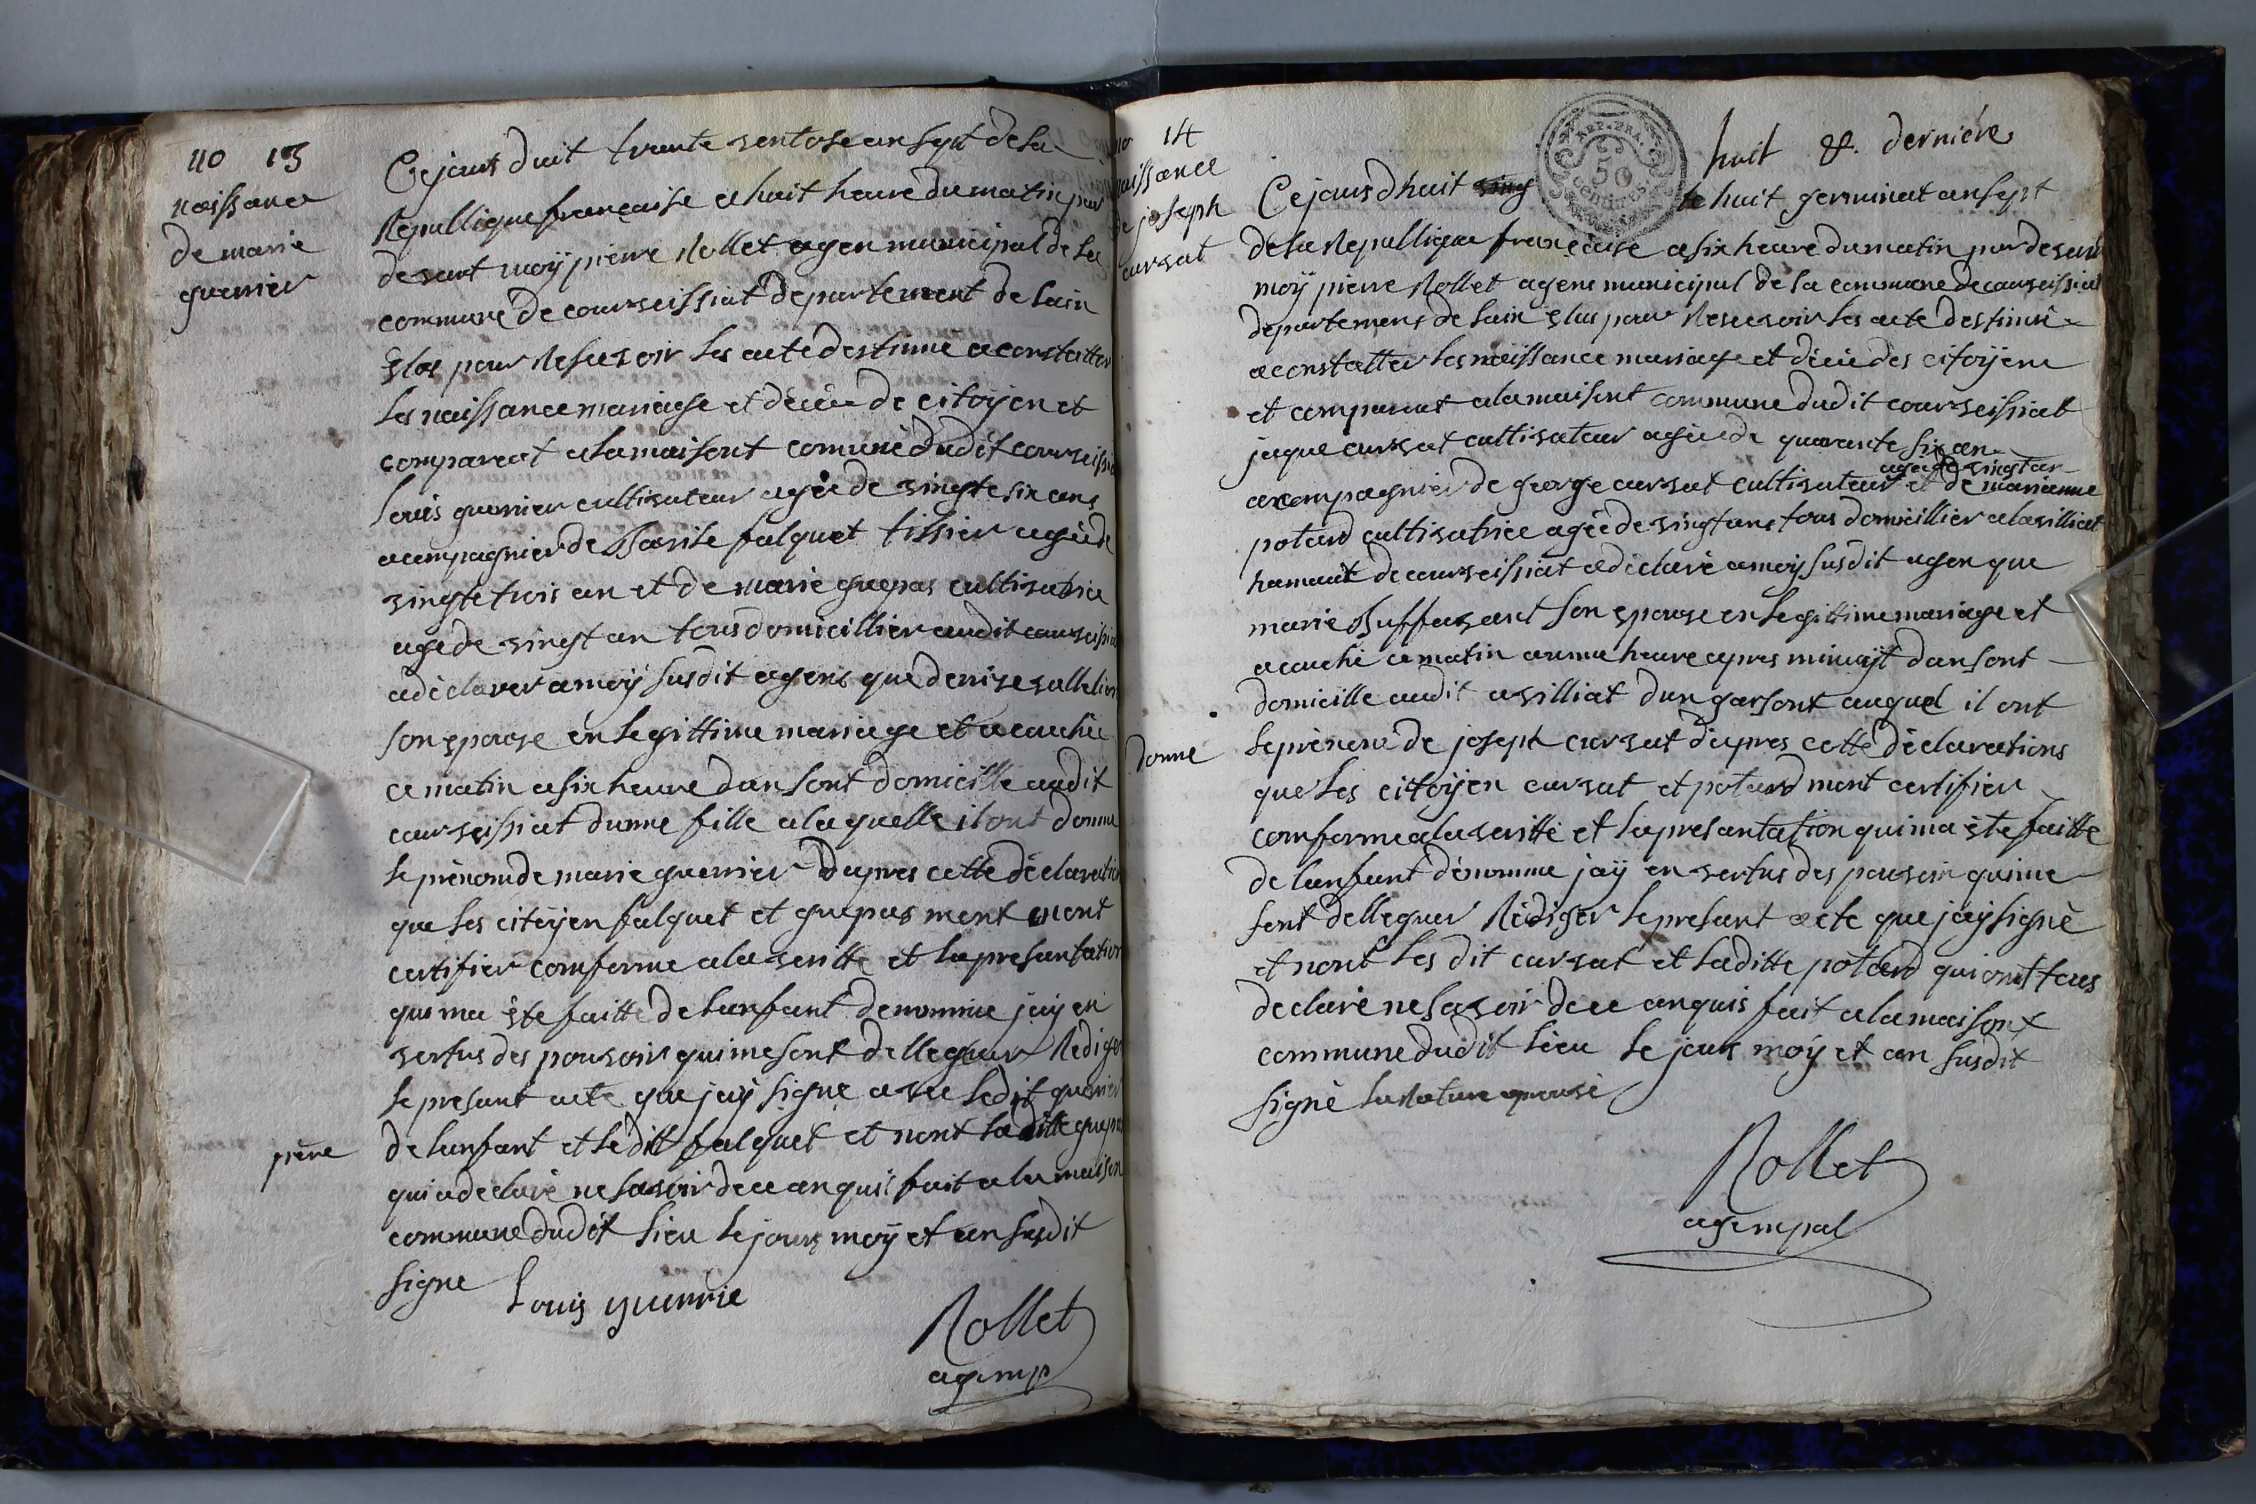 no 13
naissance
de marie
guerrier
Ce jours duit trante ventose an sept de la
Republique française a huit heure du matin par
devant moÿ pierre Rollet agen municipal de la
commune de courseissiat departement de lain
èlus pour Resusevoir les acte destinne a constatter
les naissance mariage et décée de citoÿen et
compareat a la maisont comune dudit courseissia
louis guerrier cultivateur agée de vingte six ans
acompagnier de Basile falquet tissier agée de
vingte trois an et de marie grepas cultivatrice
age de vingt an tous domicillier audit courseissia
a déclarer a moÿ susdit agens que denise vallelion
son epouse en legittime mariage et acouchée
ce matin a six heure dan sont domicille audit
courseissiat dunne fille a laquelle il ont donne
le prénom de marie guerrier Dapres cette déclaration
que les citoÿen falquet et grepas mont mont
certifier comforme a la veritte et la presantation
qui ma ète faitte de lanfant denomme jaÿ en
vertus des pouvoir qui me sont dellequer Rediger
le presant acte que jaÿ signe avec ledit guerrier
père
de lanfant et ledit falquet et nont laditte grepas
qui a declaré ne savoir de ce anquis fait a la maison
commune dudit lieu le jours moÿ et an susdit
signe
louis guerrie
Rollet
agemp
no 14
naissance
de joseph
cursat
REP. FRA.
50
centimes
huit & derniere
Ce jours dhuit ving le huit germinat an sept
de la Republique française a six heure du matin par devant
moÿ pierre Rollet agens municipal de la commune de courseissiat
departement de lain èlus pour Resusevoir les acte destinné
a constatter les naissance mariage et décée des citoÿene
et comparaut a la maisont commune dudit courseissiat
jaque cursat cultivateur agée de quarante six an
agée de vingt an
acompagnier de george cursat cultivateur et de marianne
potard cultivatrice agée de vingt ans tous domicillier a lavilliat
hamaut de courseissiat a déclaré a moÿ susdit agen que
marie Buffavant son epouse en legittime mariage et
acouché ce matin a unne heure apres minuÿt dan sont
domicille audit avilliat dun garsont auquel il ont
donne
le prénom de joseph cursat dapres cette déclarations
que les citoÿen cursat et potard mont certifier
comforme a la veritté et la presantation qui ma ète faitte
de lanfant dénomme jaÿ en vertus des pouvoir qui me
sont dellequer Rédiger le presant acte que jaÿ signé
et nont les dit cursat et laditte potard qui ont tous
declaré ne savoir de ce anquis fait a la maisont
commune dudit lieu le jours moÿ et an susdit
signé la Rature aprouvé
Rollet
age mpal